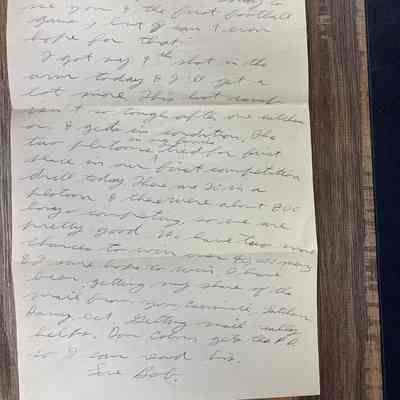 see you & the first football
game, but I can't even
hope for that.
I got my 4th shot in the
arm today & I'll get a
lot more. This boot camp
isn't so tough after one catches
on & gets in condition. The
two platoons in my barracks tied for first
place in our first competition
drill today. There are 70 in a
platoon & there were about 800
boys competing, so we are
pretty good. We have two more
chances to win over
& I sure hope to win. I have
been getting my share of the
mail from you
Harry, ect. Getting mail
helps. Don gets the P.D.
so I can read his.
Love Bob.